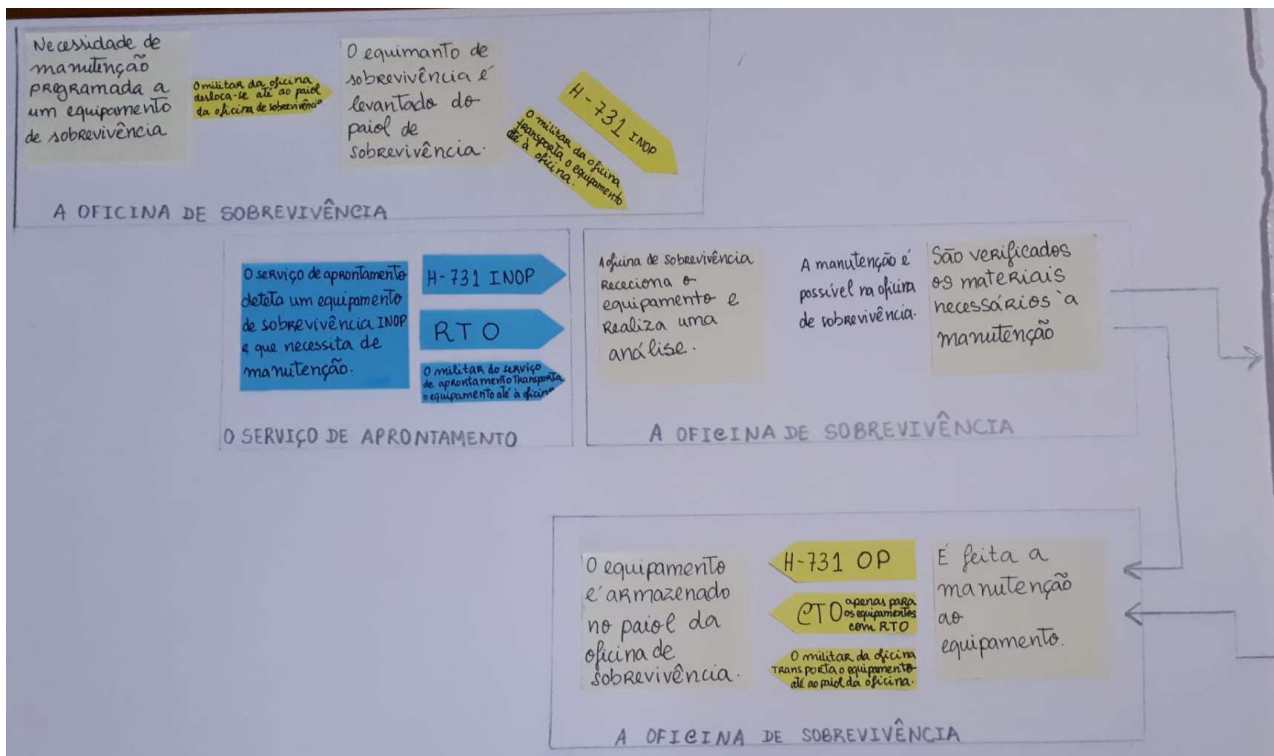 Necessidade de
manutenção
programada a
um equipamento
de sobrevivência
O militar da oficina
desloca-se até ao paiol
da oficina de sobrevivência
O equimanto de
sobrevivência é
levantado do
paiol de
sobrevivência.
H-731 INOP
O militar da oficina
transporta o equipamento
até à oficina.
A OFICINA DE SOBREVIVÊNCIA
O serviço de aprontamento
deteta um equipamento
de sobrevivência INOP
e que necessita de
manutenção.
H-731 INOP
RTO
O militar do serviço
de aprontamento transporta
o equipamento até à oficina
O SERVIÇO DE APRONTAMENTO
A oficina de sobrevivência
receciona o
equipamento e
realiza uma
análise.
A manutenção é
possível na oficina
de sobrevivência.
São verificados
os materiais
necessários à
manutenção
A OFICINA DE SOBREVIVÊNCIA
O equipamento
é armazenado
no paiol da
oficina de
sobrevivência.
H-731 OP
CTO apenas para
os equipamentos
com RTO
O militar da oficina
transporta o equipamento
até ao paiol da oficina.
É feita a
manutenção
ao
equipamento.
A OFICINA DE SOBREVIVÊNCIA